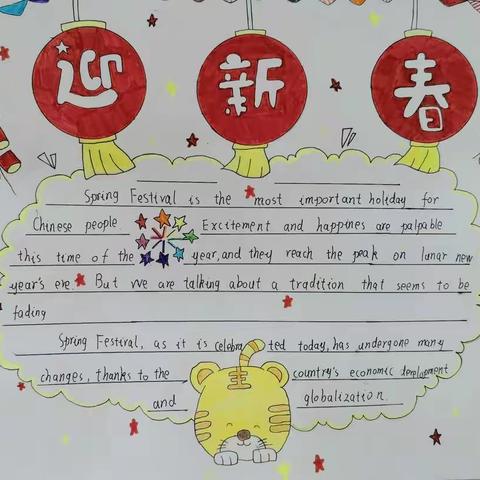 迎新春
Spring Festival is the most important holiday for
Chinese people. Excitement and happines are palpable
this time of the year, and they reach the peak on lunar new
year's eve. But we are talking about a tradition that seems to be
fading
Spring Festival, as it is celebrated today, has undergone many
changes, thanks to the country's economic development
and globalization.